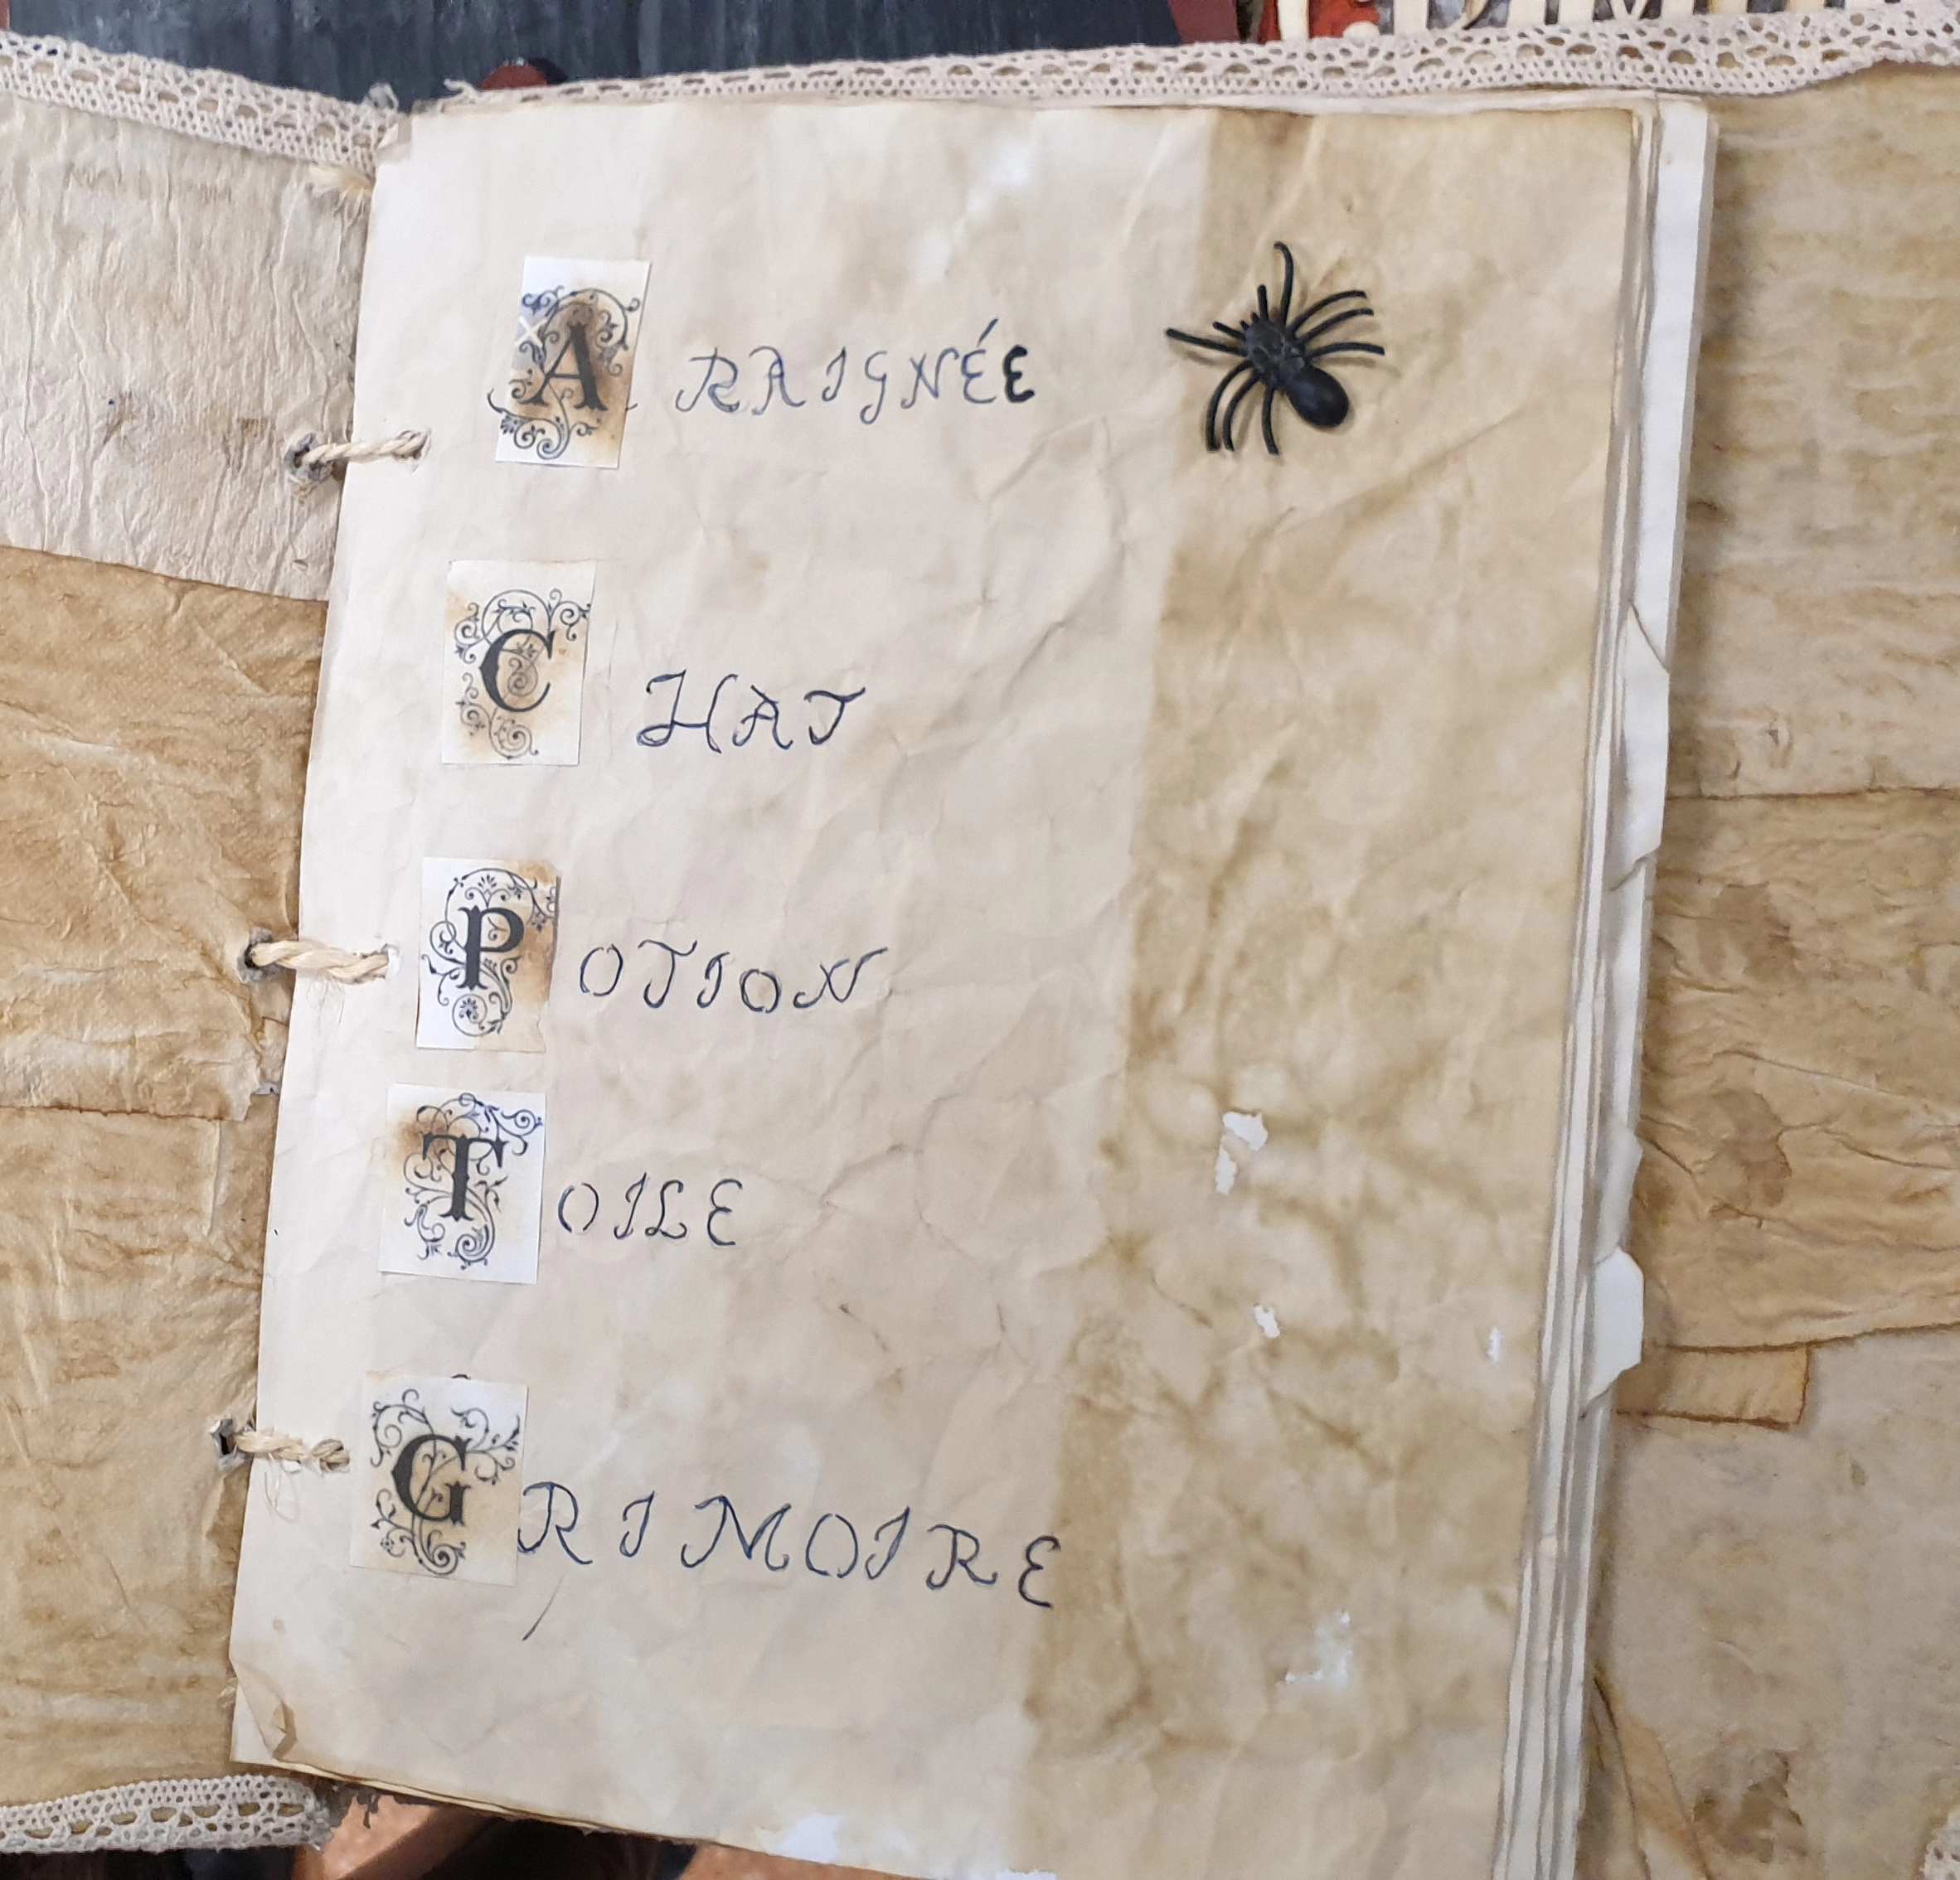 ARAIGNÉE
CHAT
POTION
TOILE
GRIMOIRE